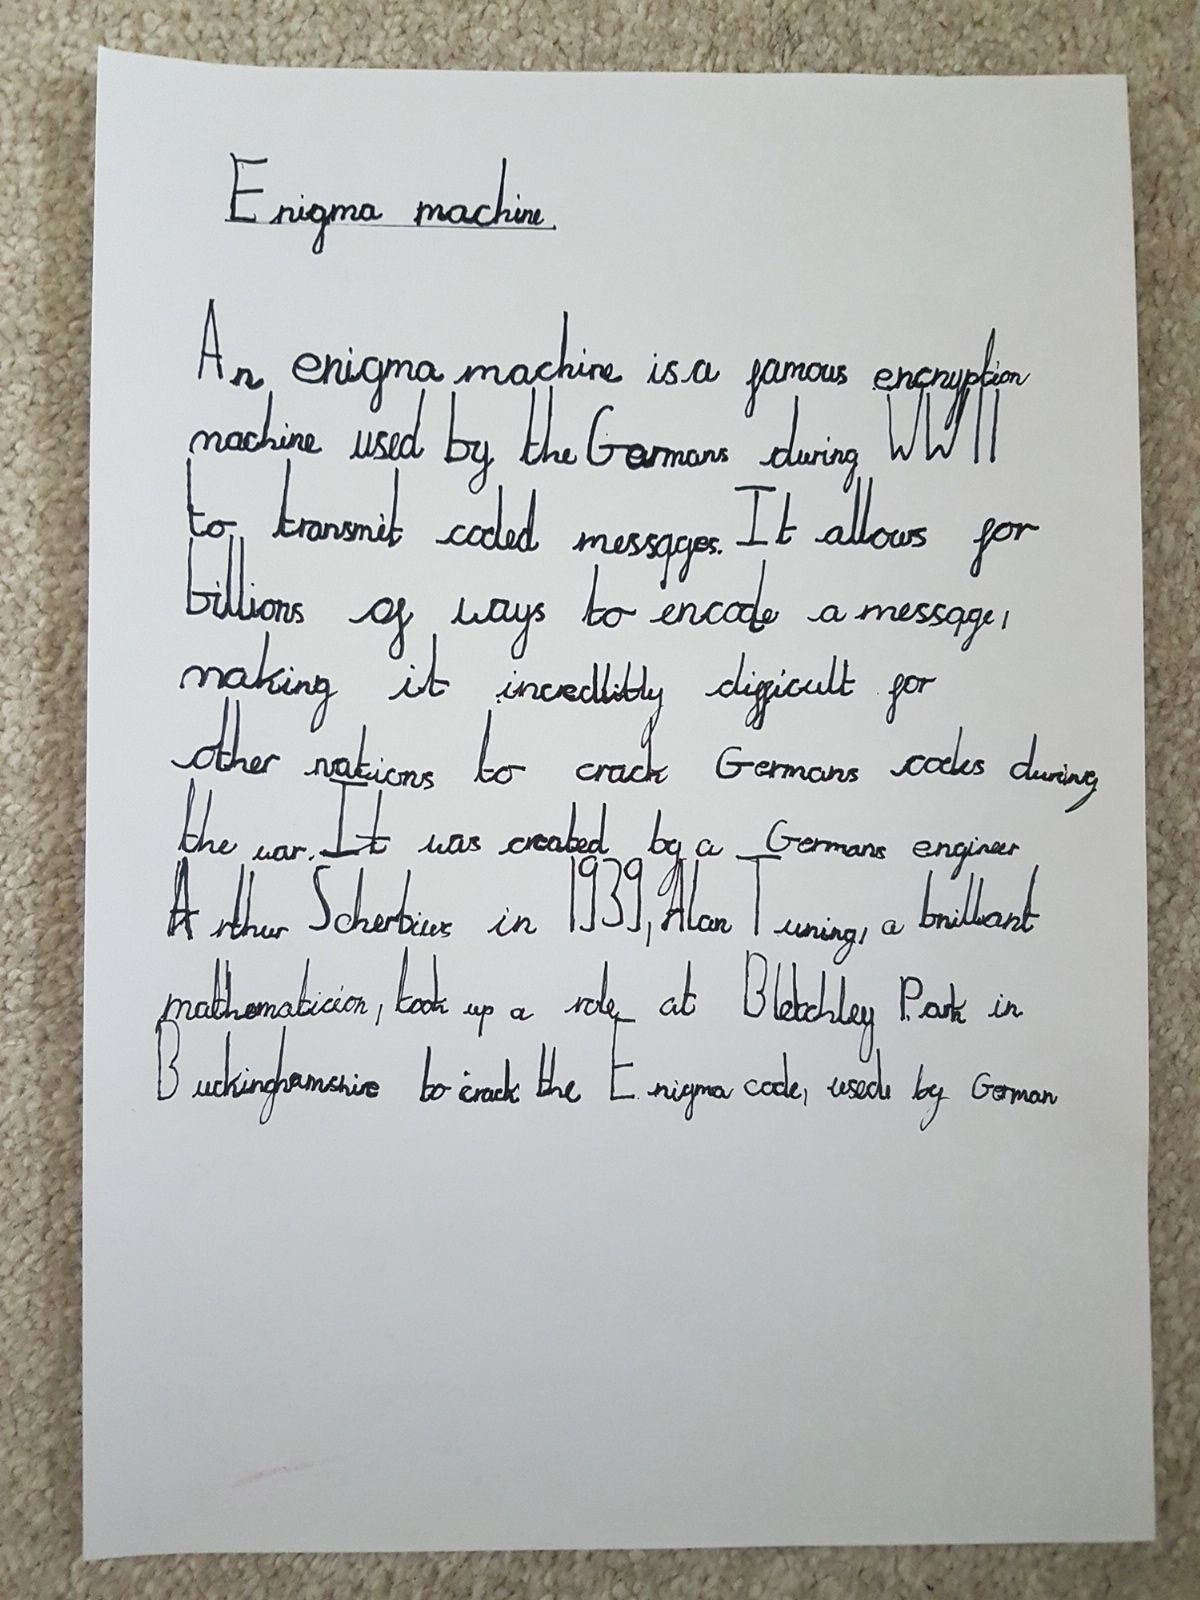 Enigma machine.
An enigma machine is a famous encryption
machine used by the Germans during WWII
to transmit coded messages. It allows for
billions of ways to encode a message,
making it incredlibly difficult for
other nations to crack Germans codes during
the war. It was created by a Germans engineer
Arthur Scherbius in 1939, Alan Turning, a brilliant
mathematician, took up a role at Bletchley Park in
Buckinghamshire to crack the Enigma code, used by German